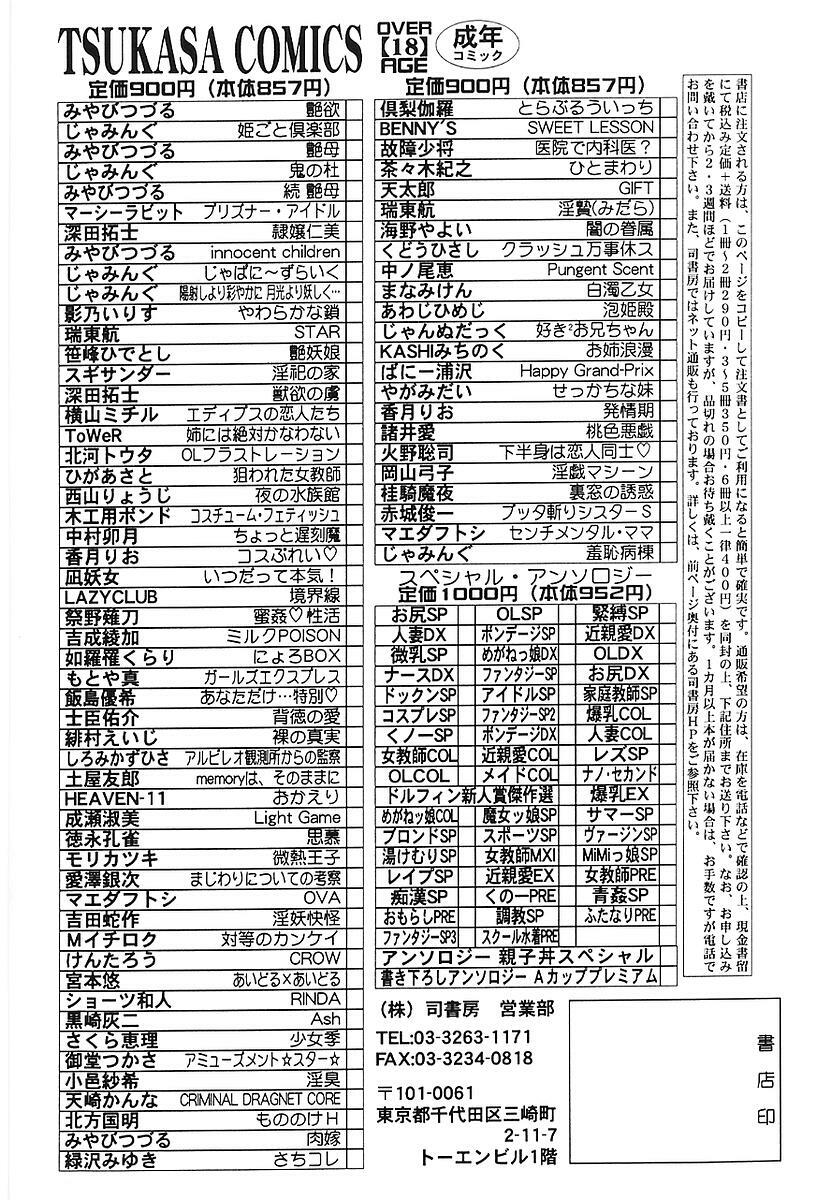 TSUKASA COMICS
OVER
【18】
AGE
成年
コミック
定価900円（本体857円）
みやびつづる 艶欲
じゃみんぐ 姫ごと倶楽部
みやびつづる 艶母
じゃみんぐ 鬼の杜
みやびつづる 続 艶母
マーシーラビット プリズナー・アイドル
深田拓士 隷嬢仁美
みやびつづる innocent children
じゃみんぐ じゃぱに～ずらいく
じゃみんぐ 陽射しより彩やかに 月光より妖しく…
影乃いりす やわらかな鎖
瑞東航 STAR
笹峰ひでとし 艶妖娘
スギサンダー 淫祀の家
深田拓士 獣欲の虜
横山ミチル エディプスの恋人たち
ToWeR 姉には絶対かなわない
北河トウタ OLフラストレーション
ひがあさと 狙われた女教師
西山りょうじ 夜の水族館
木工用ボンド コスチューム・フェティッシュ
中村卯月 ちょっと遅刻魔
香月りお コスぷれい♡
凪妖女 いつだって本気！
LAZYCLUB 境界線
祭野薙刀 蜜姦♡性活
吉成綾加 ミルクPOISON
如羅罹くらり にょろBOX
もとや真 ガールズエクスプレス
飯島優希 あなただけ…特別♡
士臣佑介 背徳の愛
緋村えいじ 裸の真実
しろみかずひさ アルビレオ観測所からの監察
土屋友郎 memoryは、そのままに
HEAVEN-11 おかえり
成瀬淑美 Light Game
徳永孔雀 思慕
モリカツキ 微熱王子
愛澤銀次 まじわりについての考察
マエダフトシ OVA
吉田蛇作 淫妖快怪
Mイチロク 対等のカンケイ
けんたろう CROW
宮本悠 あいどる×あいどる
ショーツ和人 RINDA
黒崎灰二 Ash
さくら恵理 少女季
御堂つかさ アミューズメント☆スター☆
小邑紗希 淫臭
天崎かんな CRIMINAL DRAGNET CORE
北方国明 もののけH
みやびつづる 肉嫁
緑沢みゆき さちコレ
定価900円（本体857円）
倶梨伽羅 とらぶるういっち
BENNY'S SWEET LESSON
故障少将 医院で内科医？
茶々木紀之 ひとまわり
天太郎 GIFT
瑞東航 淫贄(みだら)
海野やよい 闇の眷属
くどうひさし クラッシュ万事休ス
中ノ尾恵 Pungent Scent
まなみけん 白濁乙女
あわじひめじ 泡姫殿
じゃんぬだっく 好き²お兄ちゃん
KASHIみちのく お姉浪漫
ぱにー浦沢 Happy Grand-Prix
やがみだい せっかちな妹
香月りお 発情期
諸井愛 桃色悪戯
火野聡司 下半身は恋人同士♡
岡山弓子 淫戯マシーン
桂騎魔夜 裏窓の誘惑
赤城俊一 ブッタ斬りシスターS
マエダフトシ センチメンタル・ママ
じゃみんぐ 羞恥病棟
スペシャル・アンソロジー
定価1000円（本体952円）
お尻SP OLSP 緊縛SP
人妻DX ボンデージSP 近親愛DX
微乳SP めがねっ娘DX OLDX
ナースDX ファンタジーSP お尻DX
ドックンSP アイドルSP 家庭教師SP
コスプレSP ファンタジーSP2 爆乳COL
くノ一SP ボンデージDX 人妻COL
女教師COL 近親愛COL レズSP
OLCOL メイドCOL ナノ・セカンド
ドルフィン新人賞傑作選 爆乳EX
めがねッ娘COL 魔女ッ娘SP サマーSP
ブロンドSP スポーツSP ヴァージンSP
湯けむりSP 女教師MXI MiMiっ娘SP
レイプSP 近親愛EX 女教師PRE
痴漢SP くの一PRE 青姦SP
おもらしPRE 調教SP ふたなりPRE
ファンタジーSP3 スクール水着PRE
アンソロジー 親子丼スペシャル
書き下ろしアンソロジー Aカッププレミアム
書店に注文される方は、このページをコピーして注文書としてご利用になると簡単で確実です。通販希望の方は、在庫を電話などで確認の上、現金書留
にて税込み定価＋送料（1冊～2冊290円・3～5冊350円・6冊以上一律400円）を同封の上、下記住所までお送り下さい。なお、お申し込み
を戴いてから2・3週間ほどでお届けしていますが、品切れの場合お待ち戴くことがございます。1カ月以上本が届かない場合は、お手数ですが電話で
お問い合わせ下さい。また、司書房ではネット通販も行っております。詳しくは、前ページ奥付にある司書房HPをご参照下さい。
（株）司書房 営業部
TEL:03-3263-1171
FAX:03-3234-0818
〒101-0061
東京都千代田区三崎町
2-11-7
トーエンビル1階
書店印